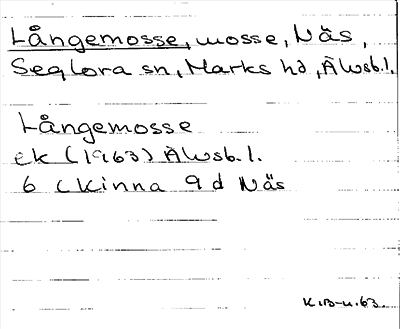 Långemosse, mosse, Näs,
Seglora sn, Marks hd, Älvsb. l.
Långemosse
ek (1963) Älvsb. l.
6 C Kinna 9 d Näs
K.B-n. 63.